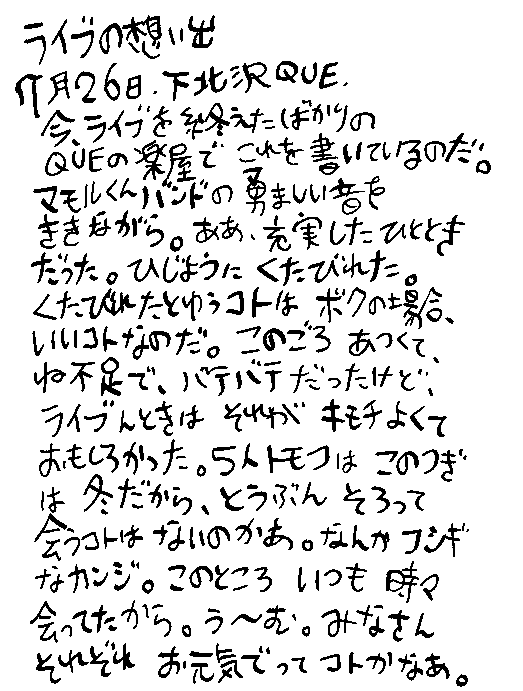 ライブの想い出
7月26日.下北沢QUE.
今、ライブを終えたばかりの
QUEの楽屋で これを書いているのだ。
マモルくんバンドの勇ましい音を
ききながら。ああ、充実したひととき
だった。ひじょうに くたびれた。
くたびれたとゆうコトは ボクの場合、
いいコトなのだ。このごろ あつくて、
ね不足で、バテバテだったけど、
ライブんときは それがキモチよくて
おもしろかった。5人トモフは このつぎ
は 冬だから、とうぶん そろって
会うコトは ないのかあ。なんかフシギ
なカンジ。このところ いつも 時々
会ってたから。う〜む。みなさん
それぞれ お元気でって コトかなあ。